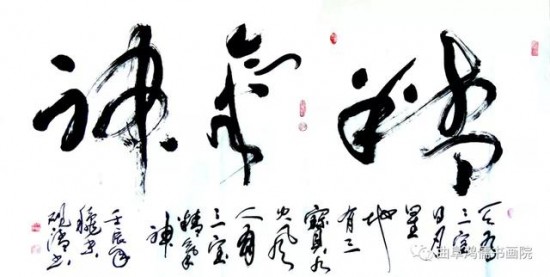 精氣神
天有
三宝
日月
星
地
有三
寳水
火风
人有
三宝
精氣
神
壬辰年
曲阜鸿儒书画院